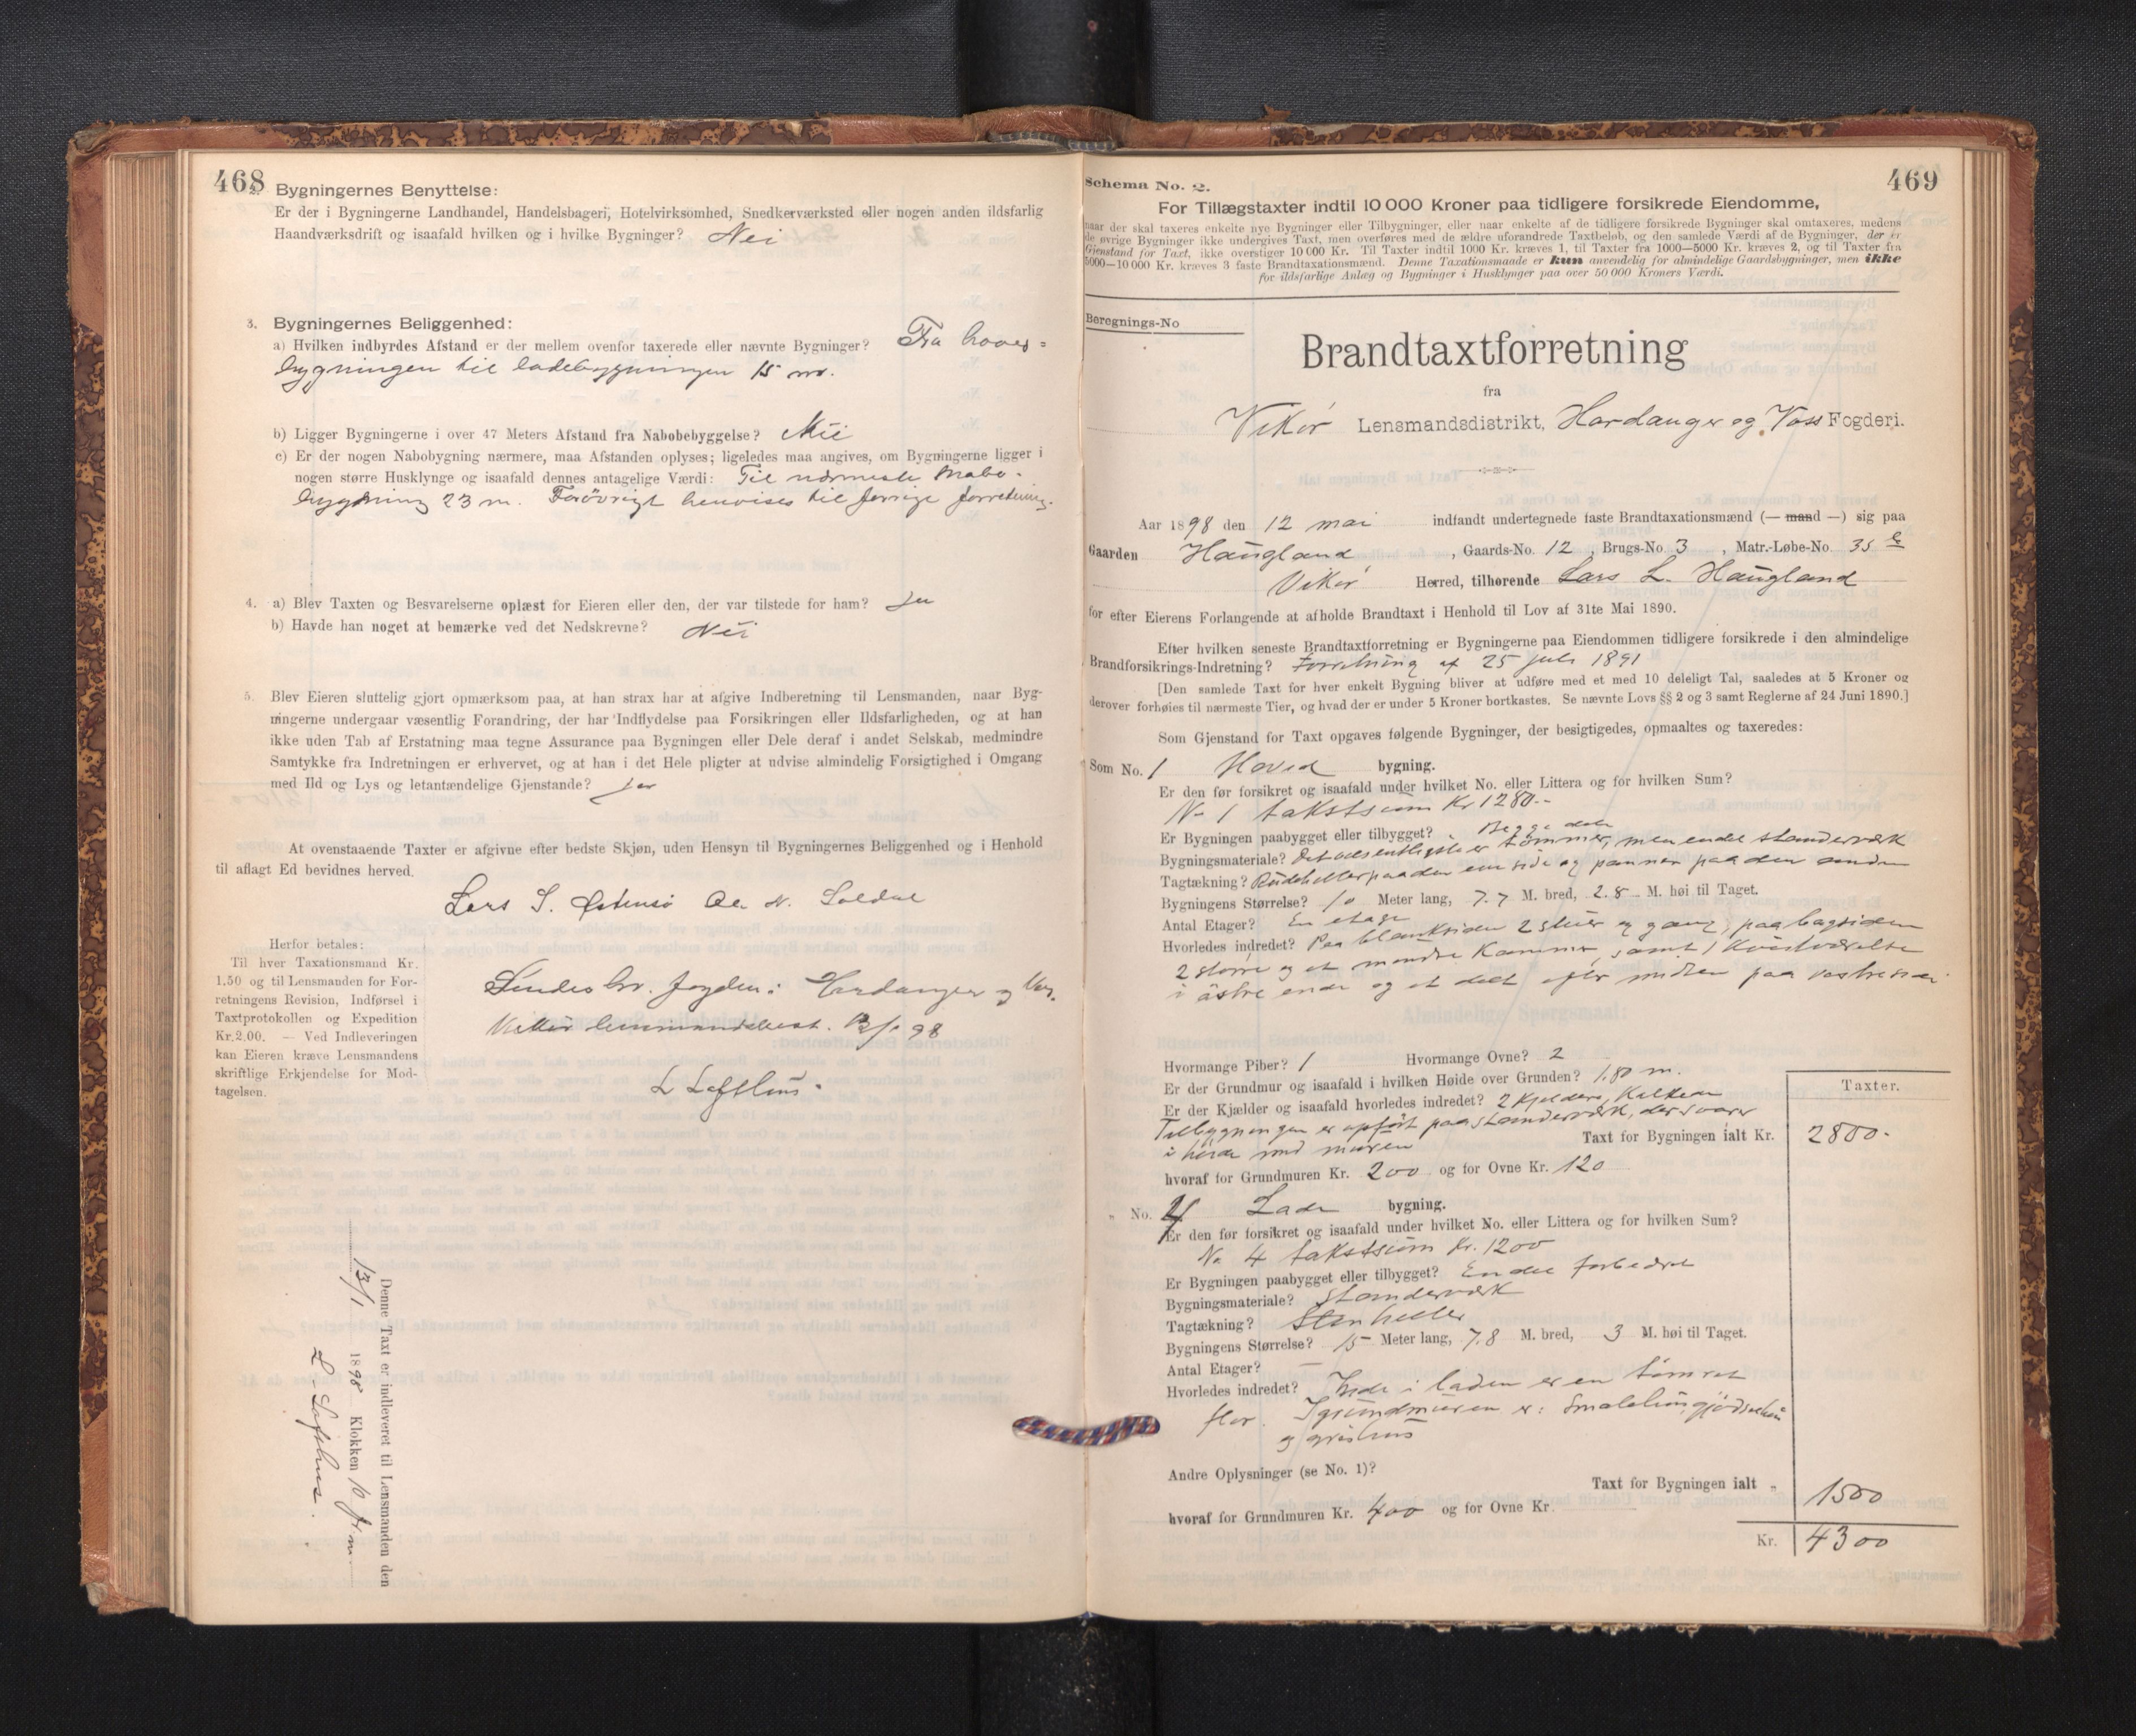 468
2. Bygningernes Benyttelse:
Er der i Bygningerne Landhandel, Handelsbageri, Hotelvirksomhed, Snedkerværksted eller nogen anden ildsfarlig
Haandværksdrift og isaafald hvilken og i hvilke Bygninger? Nei
3. Bygningernes Beliggenhed:
a) Hvilken indbyrdes Afstand er der mellem ovenfor taxerede eller nævnte Bygninger? Fra hoved=
bygningen til ladebygningen 15 m.
b) Ligger Bygningerne i over 47 Meters Afstand fra Nabobebyggelse? Nei
c) Er der nogen Nabobygning nærmere, maa Afstanden oplyses; ligeledes maa angives, om Bygningerne ligger i
nogen større Husklynge og isaafald dennes antagelige Værdi: Til nærmeste Nabo-
bygning 23 m. Forövrigt henvises til forrige forretning.
4. a) Blev Taxten og Besvarelserne oplæst for Eieren eller den, der var tilstede for ham? Ja
b) Havde han noget at bemærke ved det Nedskrevne? Nei
5. Blev Eieren sluttelig gjort opmærksom paa, at han strax har at afgive Indberetning til Lensmanden, naar Byg-
ningerne undergaar væsentlig Forandring, der har Indflydelse paa Forsikringen eller Ildsfarligheden, og at han
ikke uden Tab af Erstatning maa tegne Assurance paa Bygningen eller Dele deraf i andet Selskab, medmindre
Samtykke fra Indretningen er erhvervet, og at han i det Hele pligter at udvise almindelig Forsigtighed i Omgang
med Ild og Lys og letantændelige Gjenstande? Ja
At ovenstaaende Taxter er afgivne efter bedste Skjøn, uden Hensyn til Bygningernes Beliggenhed og i Henhold
til aflagt Ed bevidnes herved.
Lars S. Östensö
Herfor betales:
Til hver Taxationsmand Kr.
1.50 og til Lensmanden for For-
retningens Revision, Indførsel i
Taxtprotokollen og Expedition
Kr. 2.00. — Ved Indleveringen
kan Eieren kræve Lensmandens
skriftlige Erkjendelse for Mod-
tagelsen.
Sendes hr. fogden i Hardanger og Vos.
Vikör lensmandsbest. 98
L Lofthus.
Denne Taxt er indleveret til Lensmanden den
13/1 1898 Klokken 10 fm
L Lofthus.
469
Schema No. 2.
For Tillægstaxter indtil 10 000 Kroner paa tidligere forsikrede Eiendomme,
naar der skal taxeres enkelte nye Bygninger eller Tilbygninger, eller naar enkelte af de tidligere forsikrede Bygninger skal omtaxeres, medens
de øvrige Bygninger ikke undergives Taxt, men overføres med de ældre uforandrede Taxtbeløb, og den samlede Værdi af de Bygninger, der er
Gjenstand for Taxt, ikke overstiger 10 000 Kr. Til Taxter indtil 1000 Kr. kræves 1, til Taxter fra 1000—5000 Kr. kræves 2, og til Taxter fra
5000—10 000 Kr. kræves 3 faste Brandtaxationsmænd. Denne Taxationsmaade er kun anvendelig for almindelige Gaardsbygninger, men ikke
for ildsfarlige Anlæg og Bygninger i Husklynger paa over 50 000 Kroners Værdi.
Beregnings-No
Brandtaxtforretning
fra
Vikör Lensmandsdistrikt, Hardanger og Voss Fogderi.
Aar 1898 den 12 mai indfandt undertegnede faste Brandtaxationsmænd (— mand —) sig paa
Gaarden Haugland, Gaards-No. 12, Brugs-No. 3, Matr.-Løbe-No. 35
Vikör Herred, tilhørende Lars L. Haugland
for efter Eierens Forlangende at afholde Brandtaxt i Henhold til Lov af 31te Mai 1890.
Efter hvilken seneste Brandtaxtforretning er Bygningerne paa Eiendommen tidligere forsikrede i den almindelige
Brandforsikrings-Indretning? Forretning af 25 juli 1891
[Den samlede Taxt for hver enkelt Bygning bliver at udføre med et med 10 deleligt Tal, saaledes at 5 Kroner og
derover forhøies til nærmeste Tier, og hvad der er under 5 Kroner bortkastes. Se nævnte Lovs §§ 2 og 3 samt Reglerne af 24 Juni 1890.]
Som Gjenstand for Taxt opgaves følgende Bygninger, der besigtigedes, opmaaltes og taxeredes:
Som No. 1 Hoved bygning.
Er den før forsikret og isaafald under hvilket No. eller Littera og for hvilken Sum?
No 1 takstsum Kr. 1280.-
Er Bygningen paabygget eller tilbygget? Begge dele
Bygningsmateriale? Det væsentligste er tømmer, men endel standerværk
Tagtækning? Rudeheller paa den ene side og panner paa den anden
Bygningens Størrelse? 10 Meter lang, 7.7 M. bred, 2.8 M. høi til Taget.
Antal Etager? En etage
Hvorledes indredet? Paa blanksiden 2 stuer og gang, paa bagsiden
2 större og et mindre Kammer, samt 1 Kvistværelse
i östre ende og et dito efter midten paa vestre
Hvormange Piber? 1 Hvormange Ovne? 2
Er der Grundmur og isaafald i hvilken Høide over Grunden? 1.80 m.
Er der Kjælder og isaafald hvorledes indredet? 2 Kjeldere,
Tilbygningen er opfört paa standerværk, der svarer
i höide med muren
Taxter.
Taxt for Bygningen ialt Kr. 2800.
hvoraf for Grundmuren Kr. 200 og for Ovne Kr. 120
„ No. 4 Lade bygning.
Er den før forsikret og isaafald under hvilket No. eller Littera og for hvilken Sum?
No 4 takstsum Kr. 1200
Er Bygningen paabygget eller tilbygget? Endel forbedret
Bygningsmateriale? Standerværk
Tagtækning? Stenheller
Bygningens Størrelse? 15 Meter lang, 7.8 M. bred, 3 M. høi til Taget.
Antal Etager? —
Hvorledes indredet? Inde i laden er en tömret
flor. I grundmuren er: Smalehus, gjödselhus
og grishus
Andre Oplysninger (se No. 1)?
Taxt for Bygningen ialt „ 1500
hvoraf for Grundmuren Kr. 400 og for Ovne Kr.
Kr. 4300